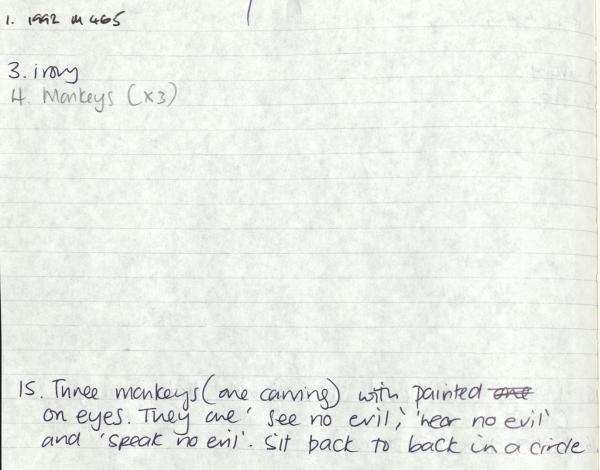 1. 1992 M 465
3. ivory
4. Monkeys (x3)
15. Three monkeys (one carving) with painted one
on eyes. They are 'see no evil', 'hear no evil'
and 'speak no evil'. Sit back to back in a circle